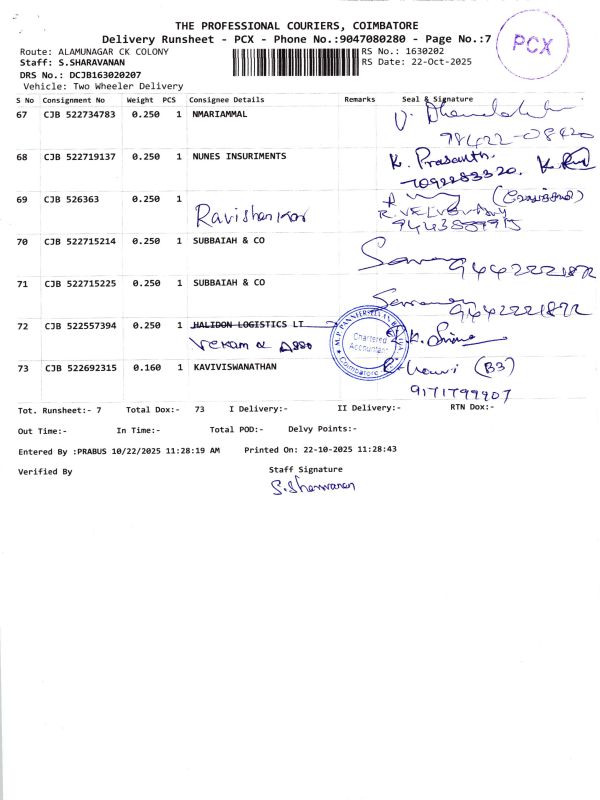 THE PROFESSIONAL COURIERS, COIMBATORE
Delivery Runsheet - PCX - Phone No.:9047080280 - Page No.:7
PCX
Route: ALAMUNAGAR CK COLONY
RS No.: 1630202
Staff: S.SHARAVANAN
RS Date: 22-Oct-2025
DRS No.: DCJB163020207
Vehicle: Two Wheeler Delivery
S No Consignment No Weight PCS Consignee Details Remarks Seal & Signature
67 CJB 522734783 0.250 1 NMARIAMMAL
78422-08420
68 CJB 522719137 0.250 1 NUNES INSURIMENTS K. Prasanth.
7092283320.
69 CJB 526363 0.250 1
Ravishankar
70 CJB 522715214 0.250 1 SUBBAIAH & CO
71 CJB 522715225 0.250 1 SUBBAIAH & CO
72 CJB 522557394 0.250 1 HALIDON LOGISTICS LT
Chartered
Accountant
Coimbatore
73 CJB 522692315 0.160 1 KAVIVISWANATHAN (B3)
9171799907
Tot. Runsheet:- 7 Total Dox:- 73 I Delivery:- II Delivery:- RTN Dox:-
Out Time:- In Time:- Total POD:- Delvy Points:-
Entered By :PRABUS 10/22/2025 11:28:19 AM Printed On: 22-10-2025 11:28:43
Verified By Staff Signature